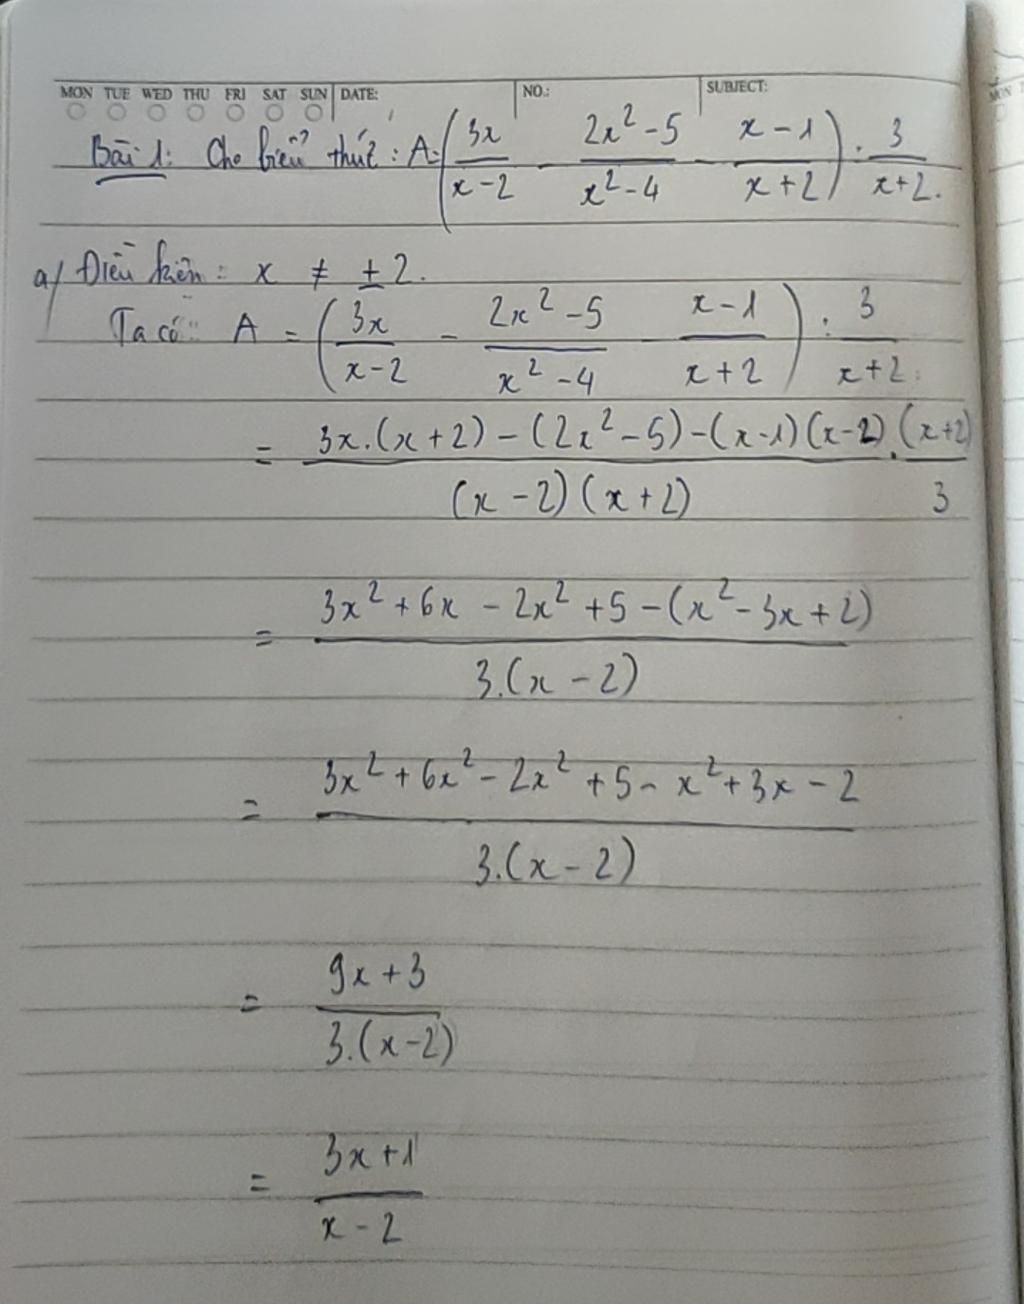 MON TUE WED THU FRI SAT SUN DATE: NO.: SUBJECT:
Bài 1: Cho biểu thức: A = (3x/(x-2) - (2x²-5)/(x²-4) - (x-1)/(x+2)) : 3/(x+2).
a/ Điều kiện: x ≠ ±2.
Ta có: A = (3x/(x-2) - (2x²-5)/(x²-4) - (x-1)/(x+2)) : 3/(x+2)
= (3x.(x+2) - (2x²-5) - (x-1)(x-2))/((x-2)(x+2)) . (x+2)/3
= (3x² + 6x - 2x² + 5 - (x² - 3x + 2))/(3.(x-2))
= (3x² + 6x² - 2x² + 5 - x² + 3x - 2)/(3.(x-2))
= (9x + 3)/(3.(x-2))
= (3x + 1)/(x - 2)